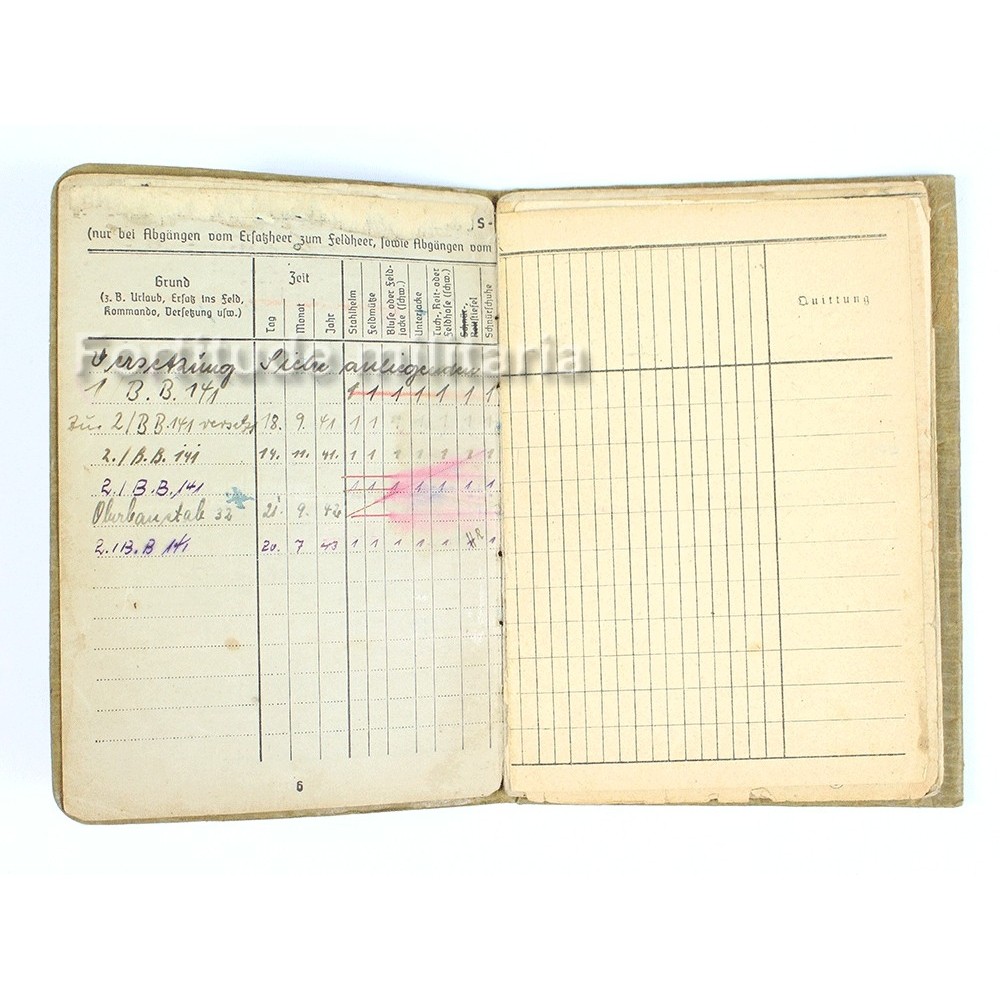 S -
(nur bei Abgängen vom Ersatzheer zum Feldheer, sowie Abgängen vom
Grund
(z. B. Urlaub, Ersatz ins Feld,
Kommando, Versetzung usw.)
Zeit
Tag
Monat
Jahr
Stahlhelm
Feldmütze
Bluse oder Feld-
jacke (schw.)
Unterjacke
Tuch-, Reit- oder
Feldhose (schw.)
Schnür-,
Reitstiefel
Schnürschuhe
Quittung
Versetzung Siehe anliegenden
1 B. B. 141 1 1 1 1 1 1 1
zur 2/B B. 141 versetzt 18. 9. 41 1 1
2./B. B. 141 14. 11. 41. 1 1 1 1 1 1 1
2./B. B. 141 1 1 1 1 1 1 1
Oberbaustab 32 21 9. 42
2./B. B 141 20. 7 43 1 1 1 1 1 1
6
militaria